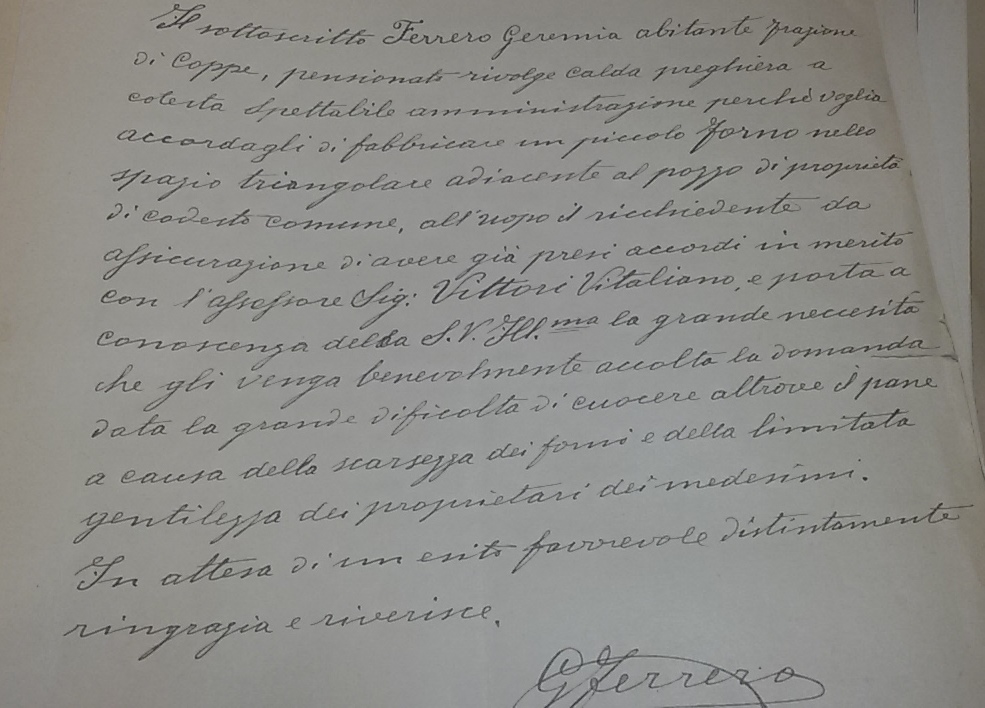 Il sottoscritto Ferrero Geremia abitante frazione
di Coppe, pensionato rivolge calda preghiera a
cotesta Spettabile amministrazione perchè voglia
accordagli di fabbricare un piccolo forno nello
spazio triangolare adiacente al pozzo di proprietà
di codesto comune, all'uopo il ricchiedente da
assicurazione di avere già presi accordi in merito
con l'assessore Sig: Vittori Vitaliano, e porta a
conoscenza della S.V. Ill.ma la grande neccesità
che gli venga benevolmente accolta la domanda
data la grande dificoltà di cuocere altrove il pane
a causa della scarsezza dei forni e della limitata
gentilezza dei proprietari dei medesimi.
In attesa di un esito favorevole distintamente
ringrazia e riverisce.
G Ferrero